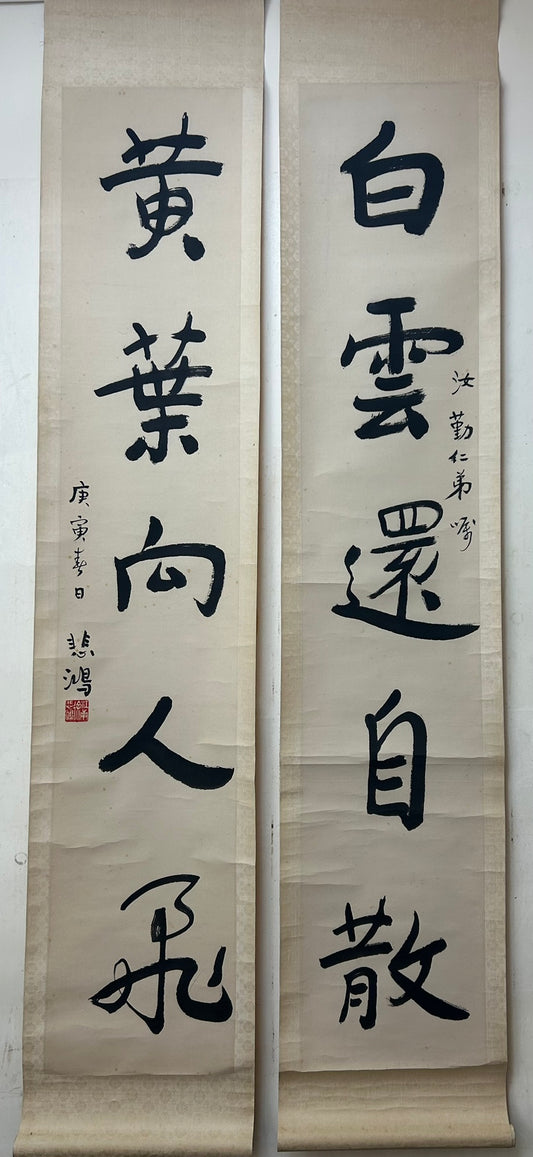 白雲還自散
汝勤仁弟嘱
黄葉向人飛
庚寅春日
悲鴻